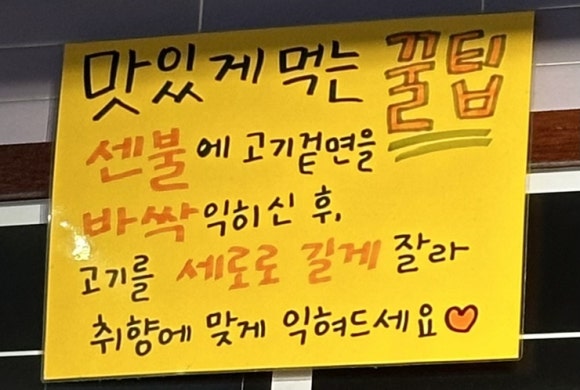 맛있게 먹는 꿀팁
센불에 고기겉면을
바싹 익히신 후,
고기를 세로로 길게 잘라
취향에 맞게 익혀드세요♥